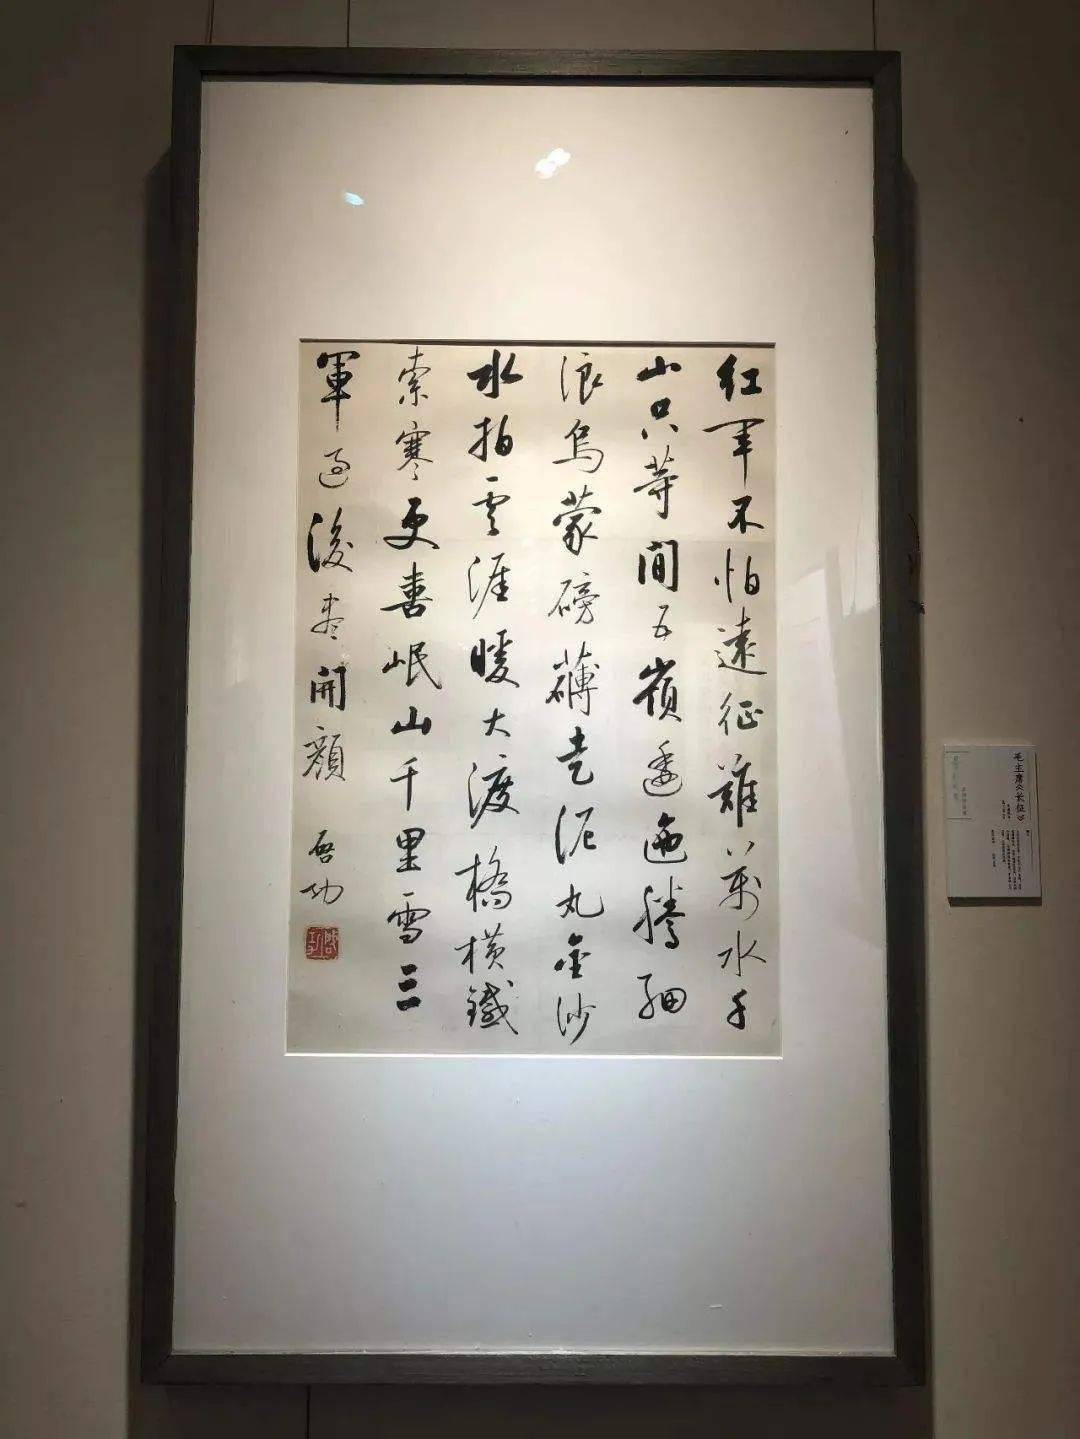 红军不怕遠征難萬水千
山只等閒五嶺逶迤騰細
浪烏蒙磅礴走泥丸金沙
水拍雲涯暖大渡橋橫鐵
索寒更喜岷山千里雪三
軍過後盡開顏
启功
啟功
毛主席《长征》